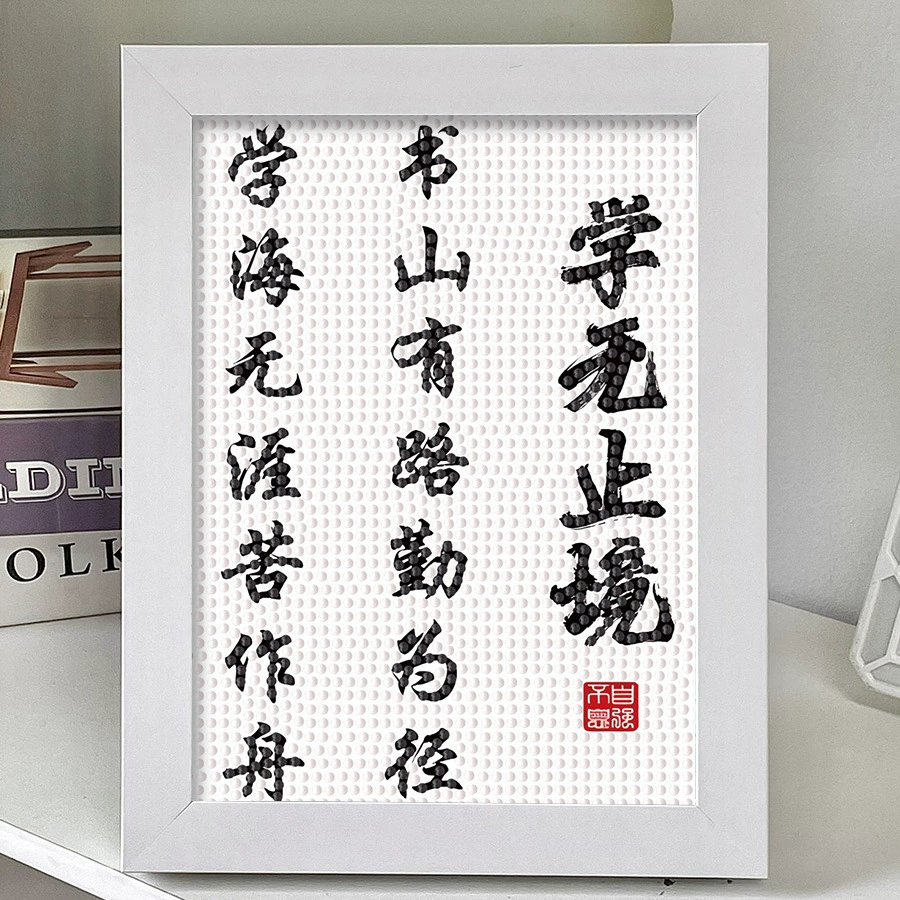 学无止境
书山有路勤为径
学海无涯苦作舟
自强不息
OLK